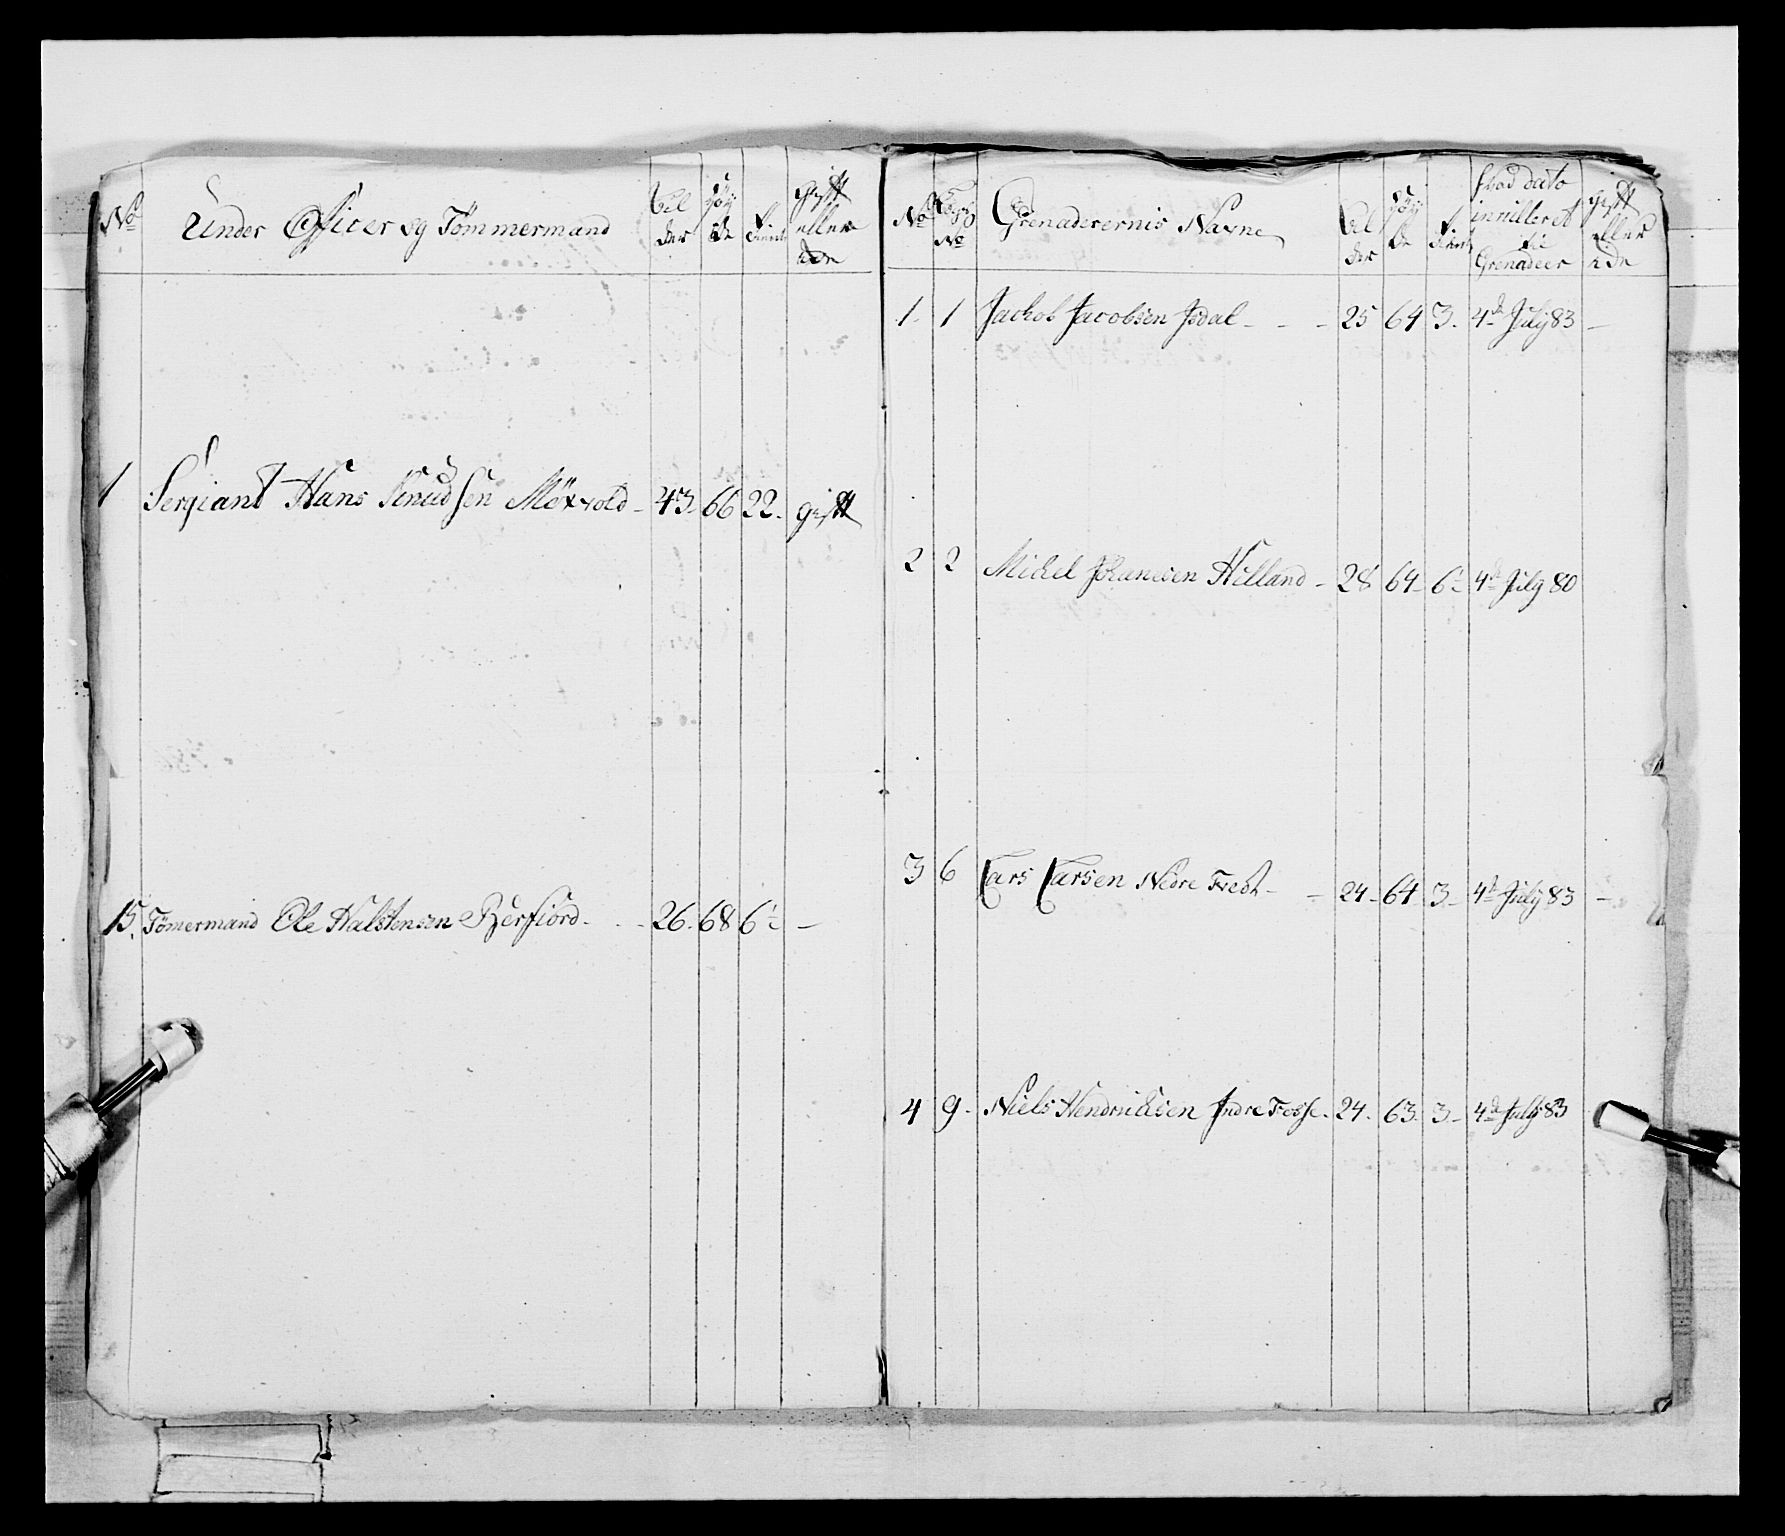 No
Under Officer og Tömmermænd
Al
der
Höy
de
Tient
gift
eller
ide
1 Sergiant Hans Knudsen Möxvold - 43. 66 22. gift
15. Tömermand Ole Halstensen Berfiord - 26. 68 6½ -
No
No
Grenaderernis Navne
Al
der
Höy
de
Tient
Hvad dato
inrulleret
til
Grenadeer
gift
eller
ide
1. 1 Jackob Jacobsen Isdal - - - 25 64 3. 4de July 83 -
2 2 Michel Johannesen Helland - 28 64 - 6½ 4de July 80
3 6 Lars Larsen Nedre Tredt - - 24 - 64 3 - 4de July 83 -
4 9. Niels Hendrichsen Indre Fosse - 24. 63. 3 - 4de July 83